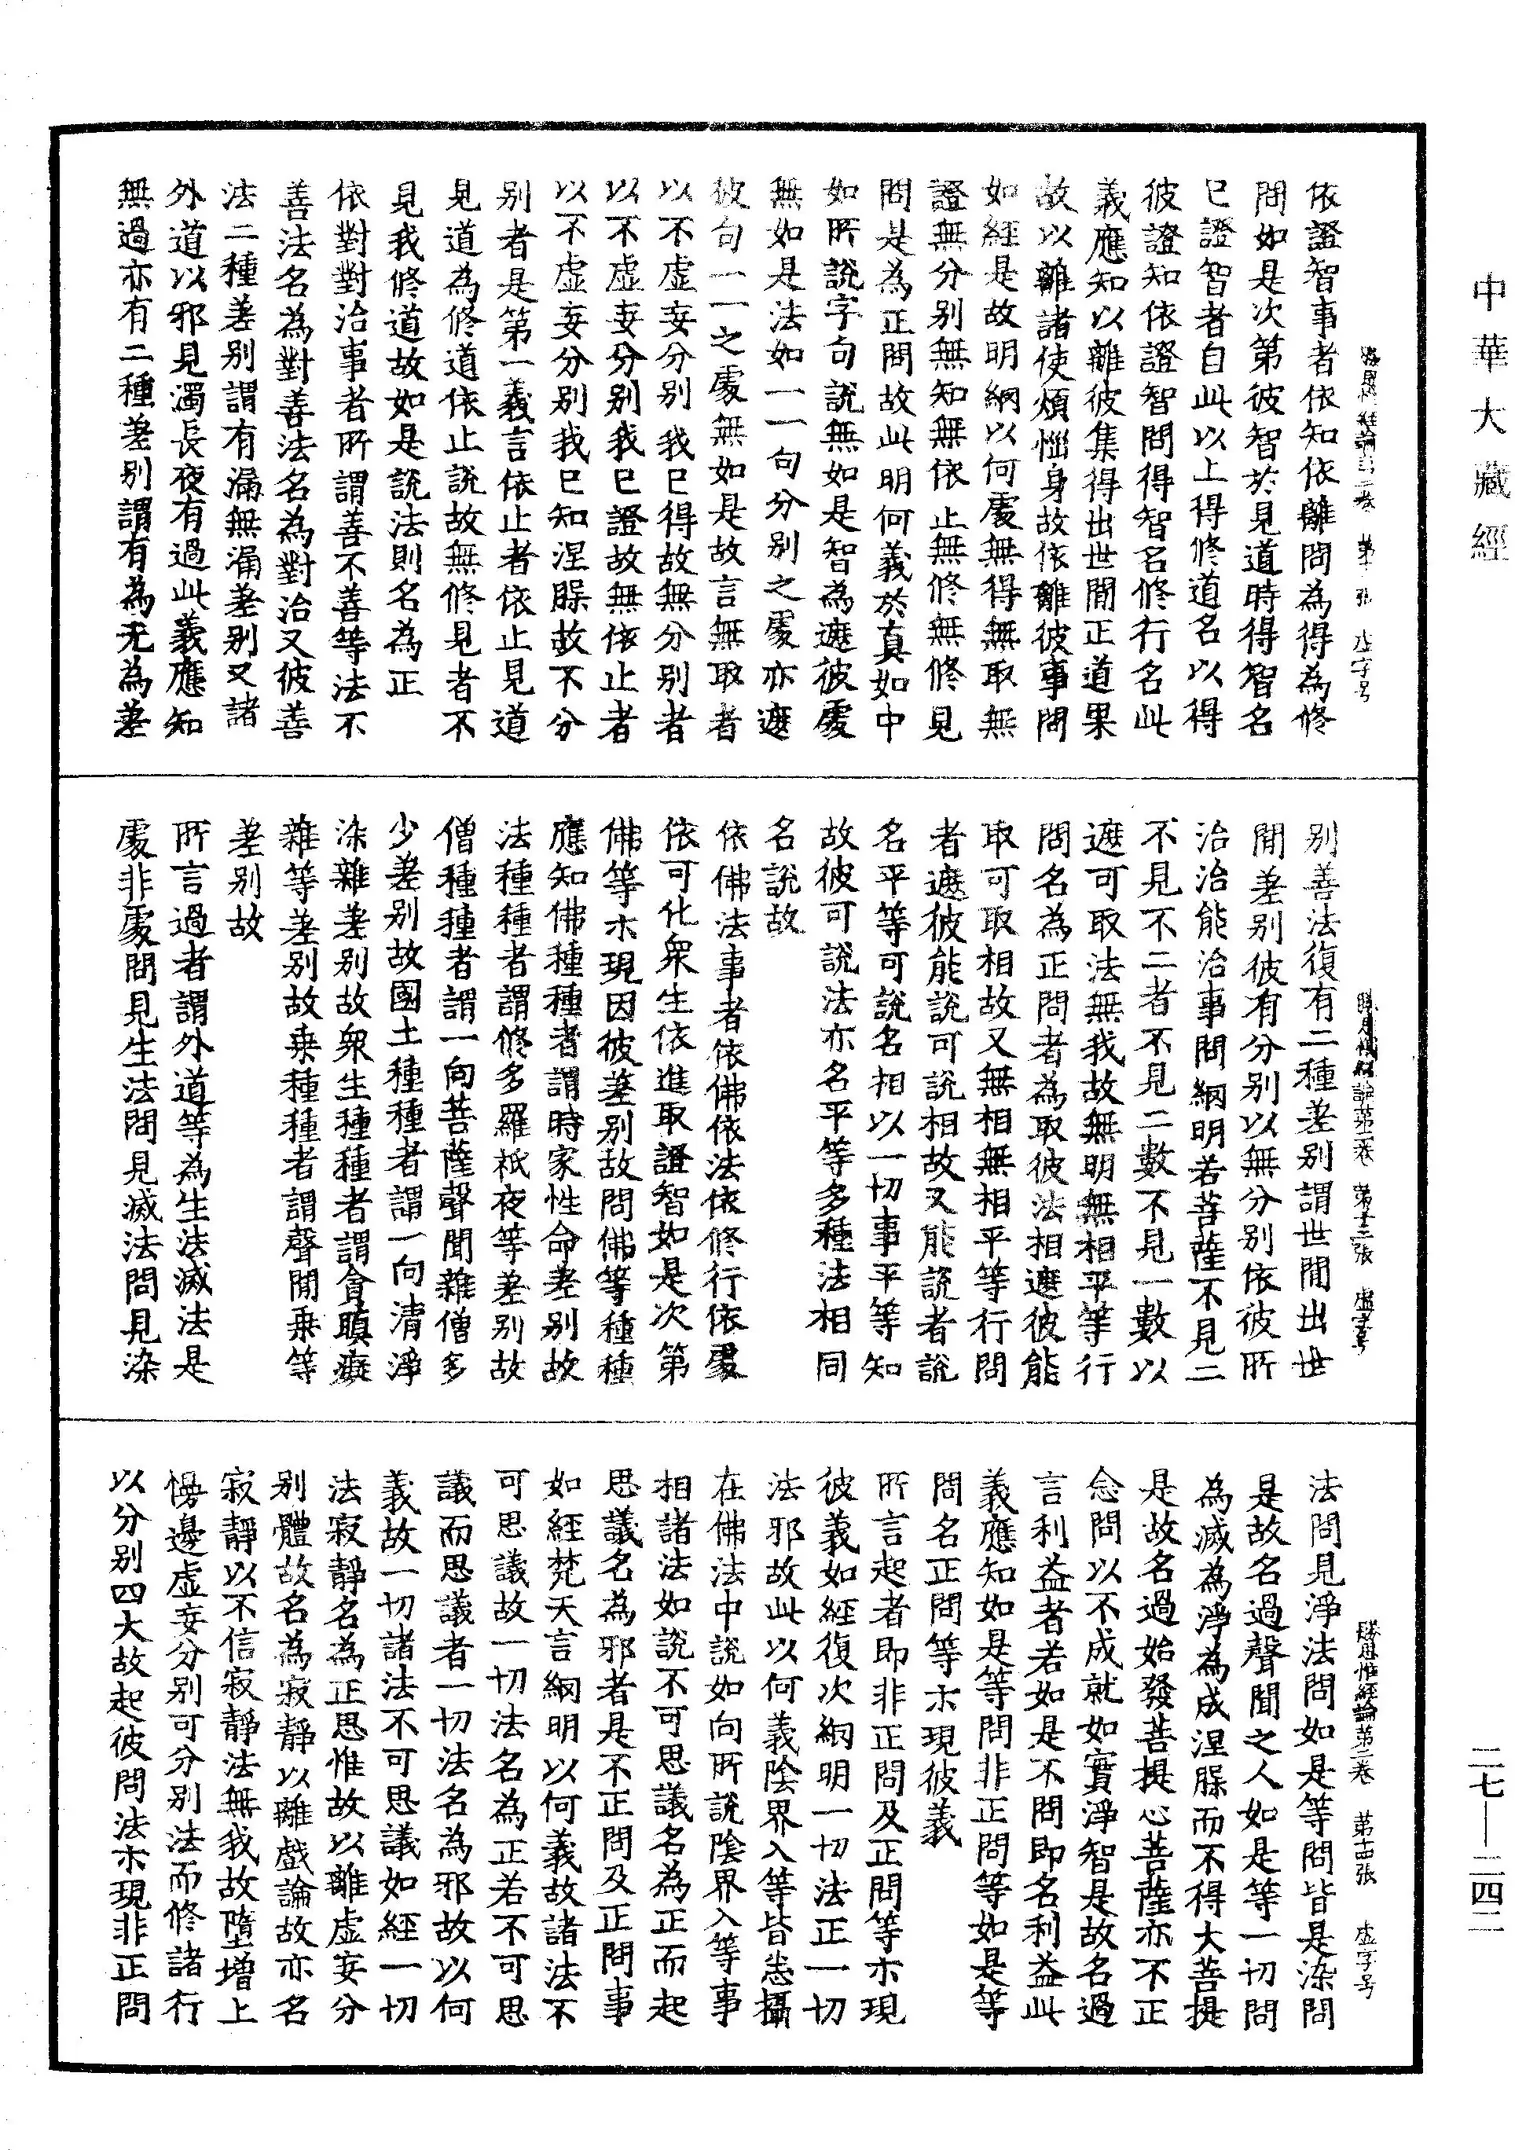 中華大藏經
依證智事者依知依離問為得為修
問如是次第彼智於見道時得智名
已證智者自此以上得修道名以得
彼證知依證智問得智名修行名此
義應知以離彼集得出世間正道果
故以離諸使煩惱身故依離彼事問
如經是故明網以何處無得無取無
證無分別無知無依止無修無修見
問是為正問故此明何義於真如中
如所說字句說無如是智為遮彼處
無如是法如一一句分別之處亦遮
彼句一一之處無如是故言無取者
以不虛妄分別我已得故無分別者
以不虛妄分別我已證故無依止者
以不虛妄分別我已知涅槃故不分
別者是第一義言依止者依止見道
見道為修道依止說故無修見者不
見我修道故如是說法則名為正
依對對治事者所謂善不善等法不
善法名為對善法名為對治又彼善
法二種差別謂有漏無漏差別又諸
外道以邪見濁長夜有過此義應知
無過亦有二種差別謂有為无為差
別善法復有二種差別謂世間出世
間差別彼有分別以無分別依彼所
治治能治事問網明若菩薩不見二
不見不二者不見二數不見一數以
遮可取法無我故無明無相平等行
問名為正問者為取彼法相遮彼能
取可取相故又無相無相平等行問
者遮彼能說可說相故又能說者說
名平等可說名相以一切事平等知
故彼可說法亦名平等多種法相同
名說故
依佛法事者依佛依法依修行依處
依可化眾生依進取證智如是次第
佛等示現因彼差別故問佛等種種
應知佛種種者謂時家性命差別故
法種種者謂修多羅祇夜等差別故
僧種種者謂一向菩薩聲聞雜僧多
少差別故國土種種者謂一向清淨
染雜差別故眾生種種者謂貪瞋癡
雜等差別故乘種種者謂聲聞乘等
差別故
所言過者謂外道等為生法滅法是
處非處問見生法問見滅法問見染
法問見淨法問如是等問皆是染問
是故名過聲聞之人如是等一切問
為滅為淨為成涅槃而不得大菩提
是故名過始發菩提心菩薩亦不正
念問以不成就如實淨智是故名過
言利益者若如是不問即名利益此
義應知如是等問非正問等如是等
問名正問等示現彼義
所言起者即非正問及正問等示現
彼義如經復次網明一切法正一切
法邪故此以何義陰界入等皆悉攝
在佛法中說如向所說陰界入等事
相諸法如說不可思議名為正而起
思議名為邪者是不正問及正問事
如經梵天言網明以何義故諸法不
可思議故一切法名為正若不可思
議而思議者一切法名為邪故以何
義故一切諸法不可思議如經一切
法寂靜名為正思惟故以離虛妄分
別體故名為寂靜以離戲論故亦名
寂靜以不信寂靜法無我故墮增上
慢邊虛妄分別可分別法而修諸行
以分別四大故起彼問法示現非正問
勝思惟經論第二卷　第十三張　虛字号
勝思惟經論第二卷　第十四張　虛字号
二七—二四二